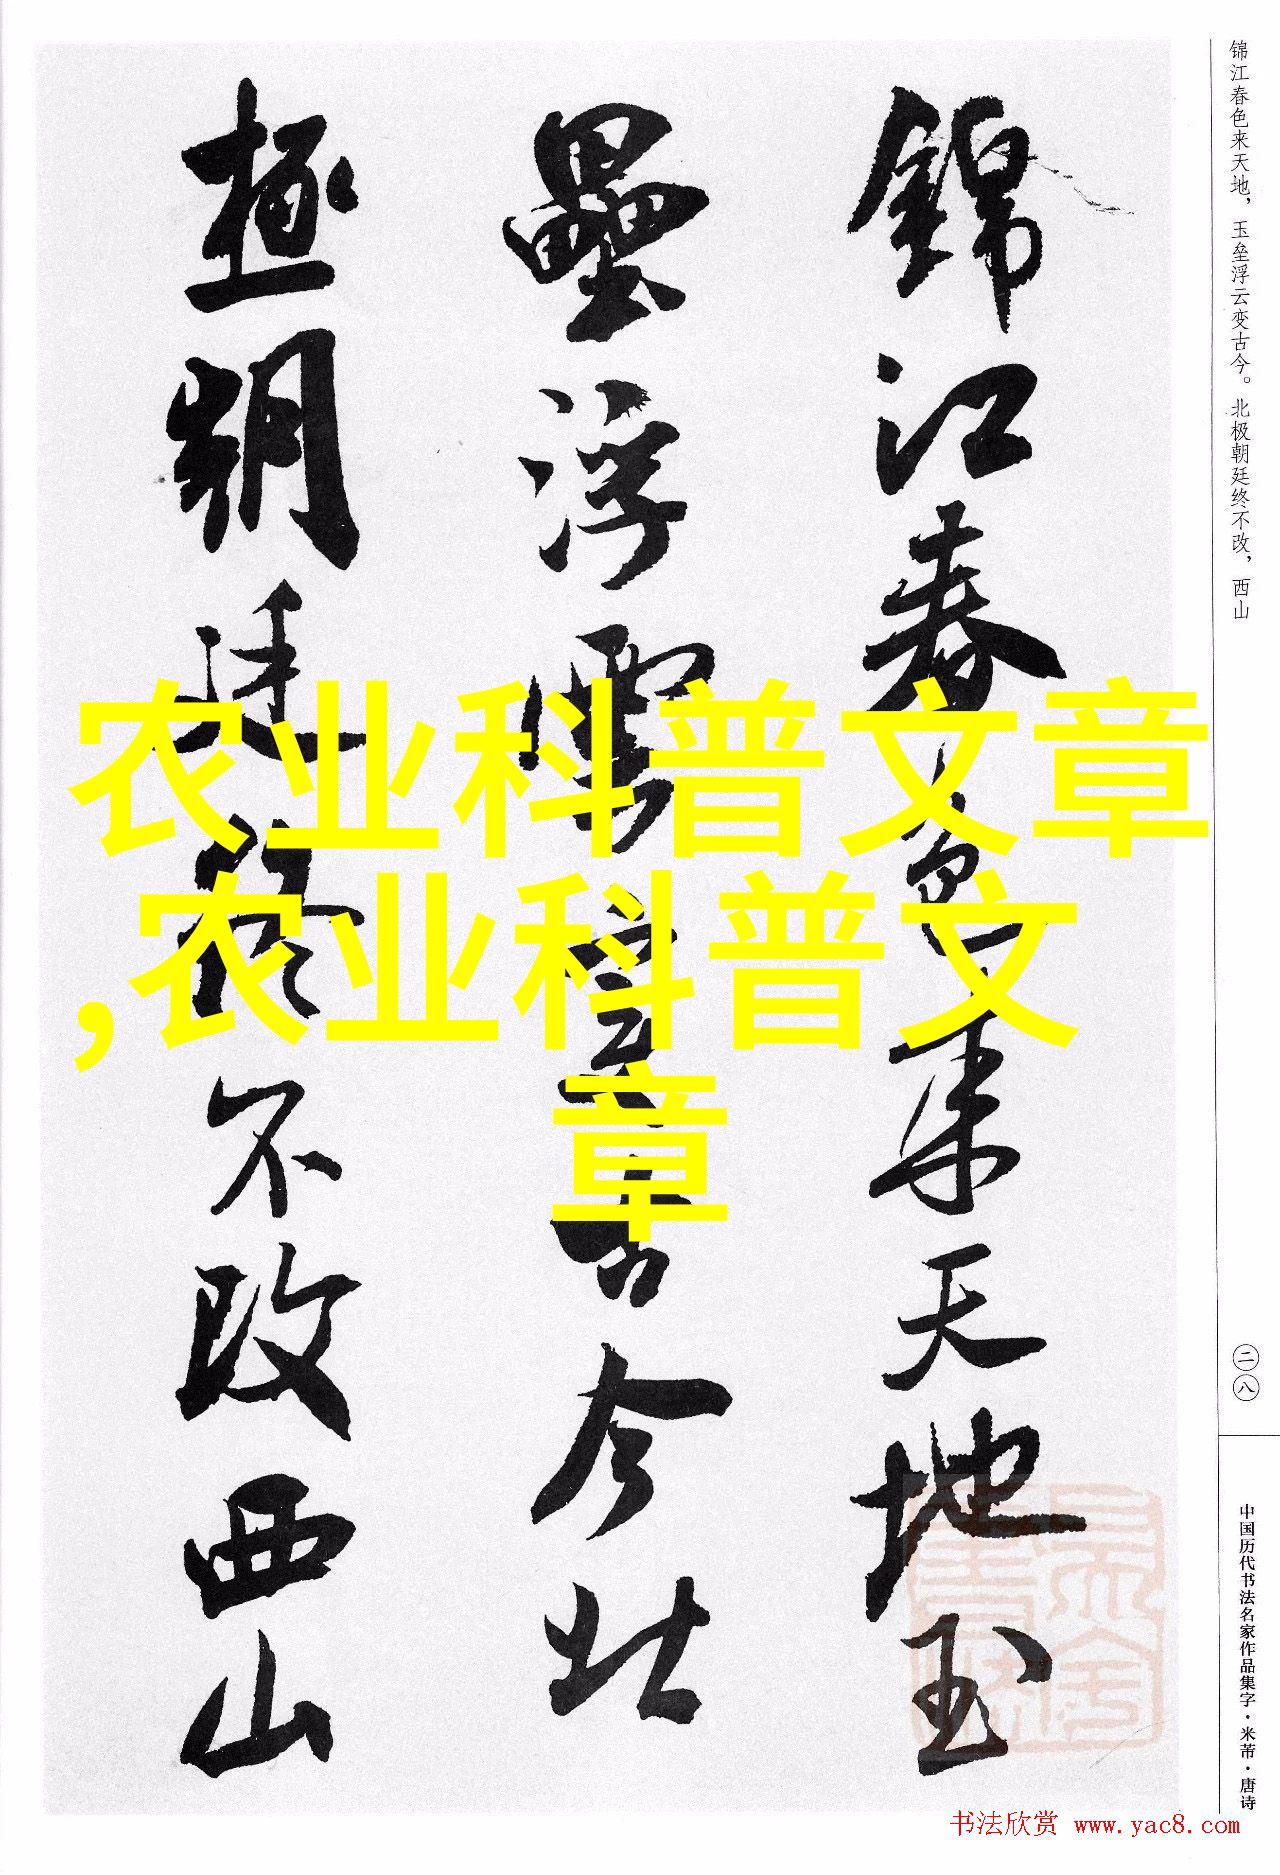 锦江春色来天地，玉垒浮云变古今。北极朝廷终不改，西山
二八
中国历代书法名家作品集字·米芾·唐诗
錦江春色来天地玉
壘浮雲變古今北
極朝廷終不改西山
农业科普文章
,农业科普文
章
书法欣赏 www.yac8.com